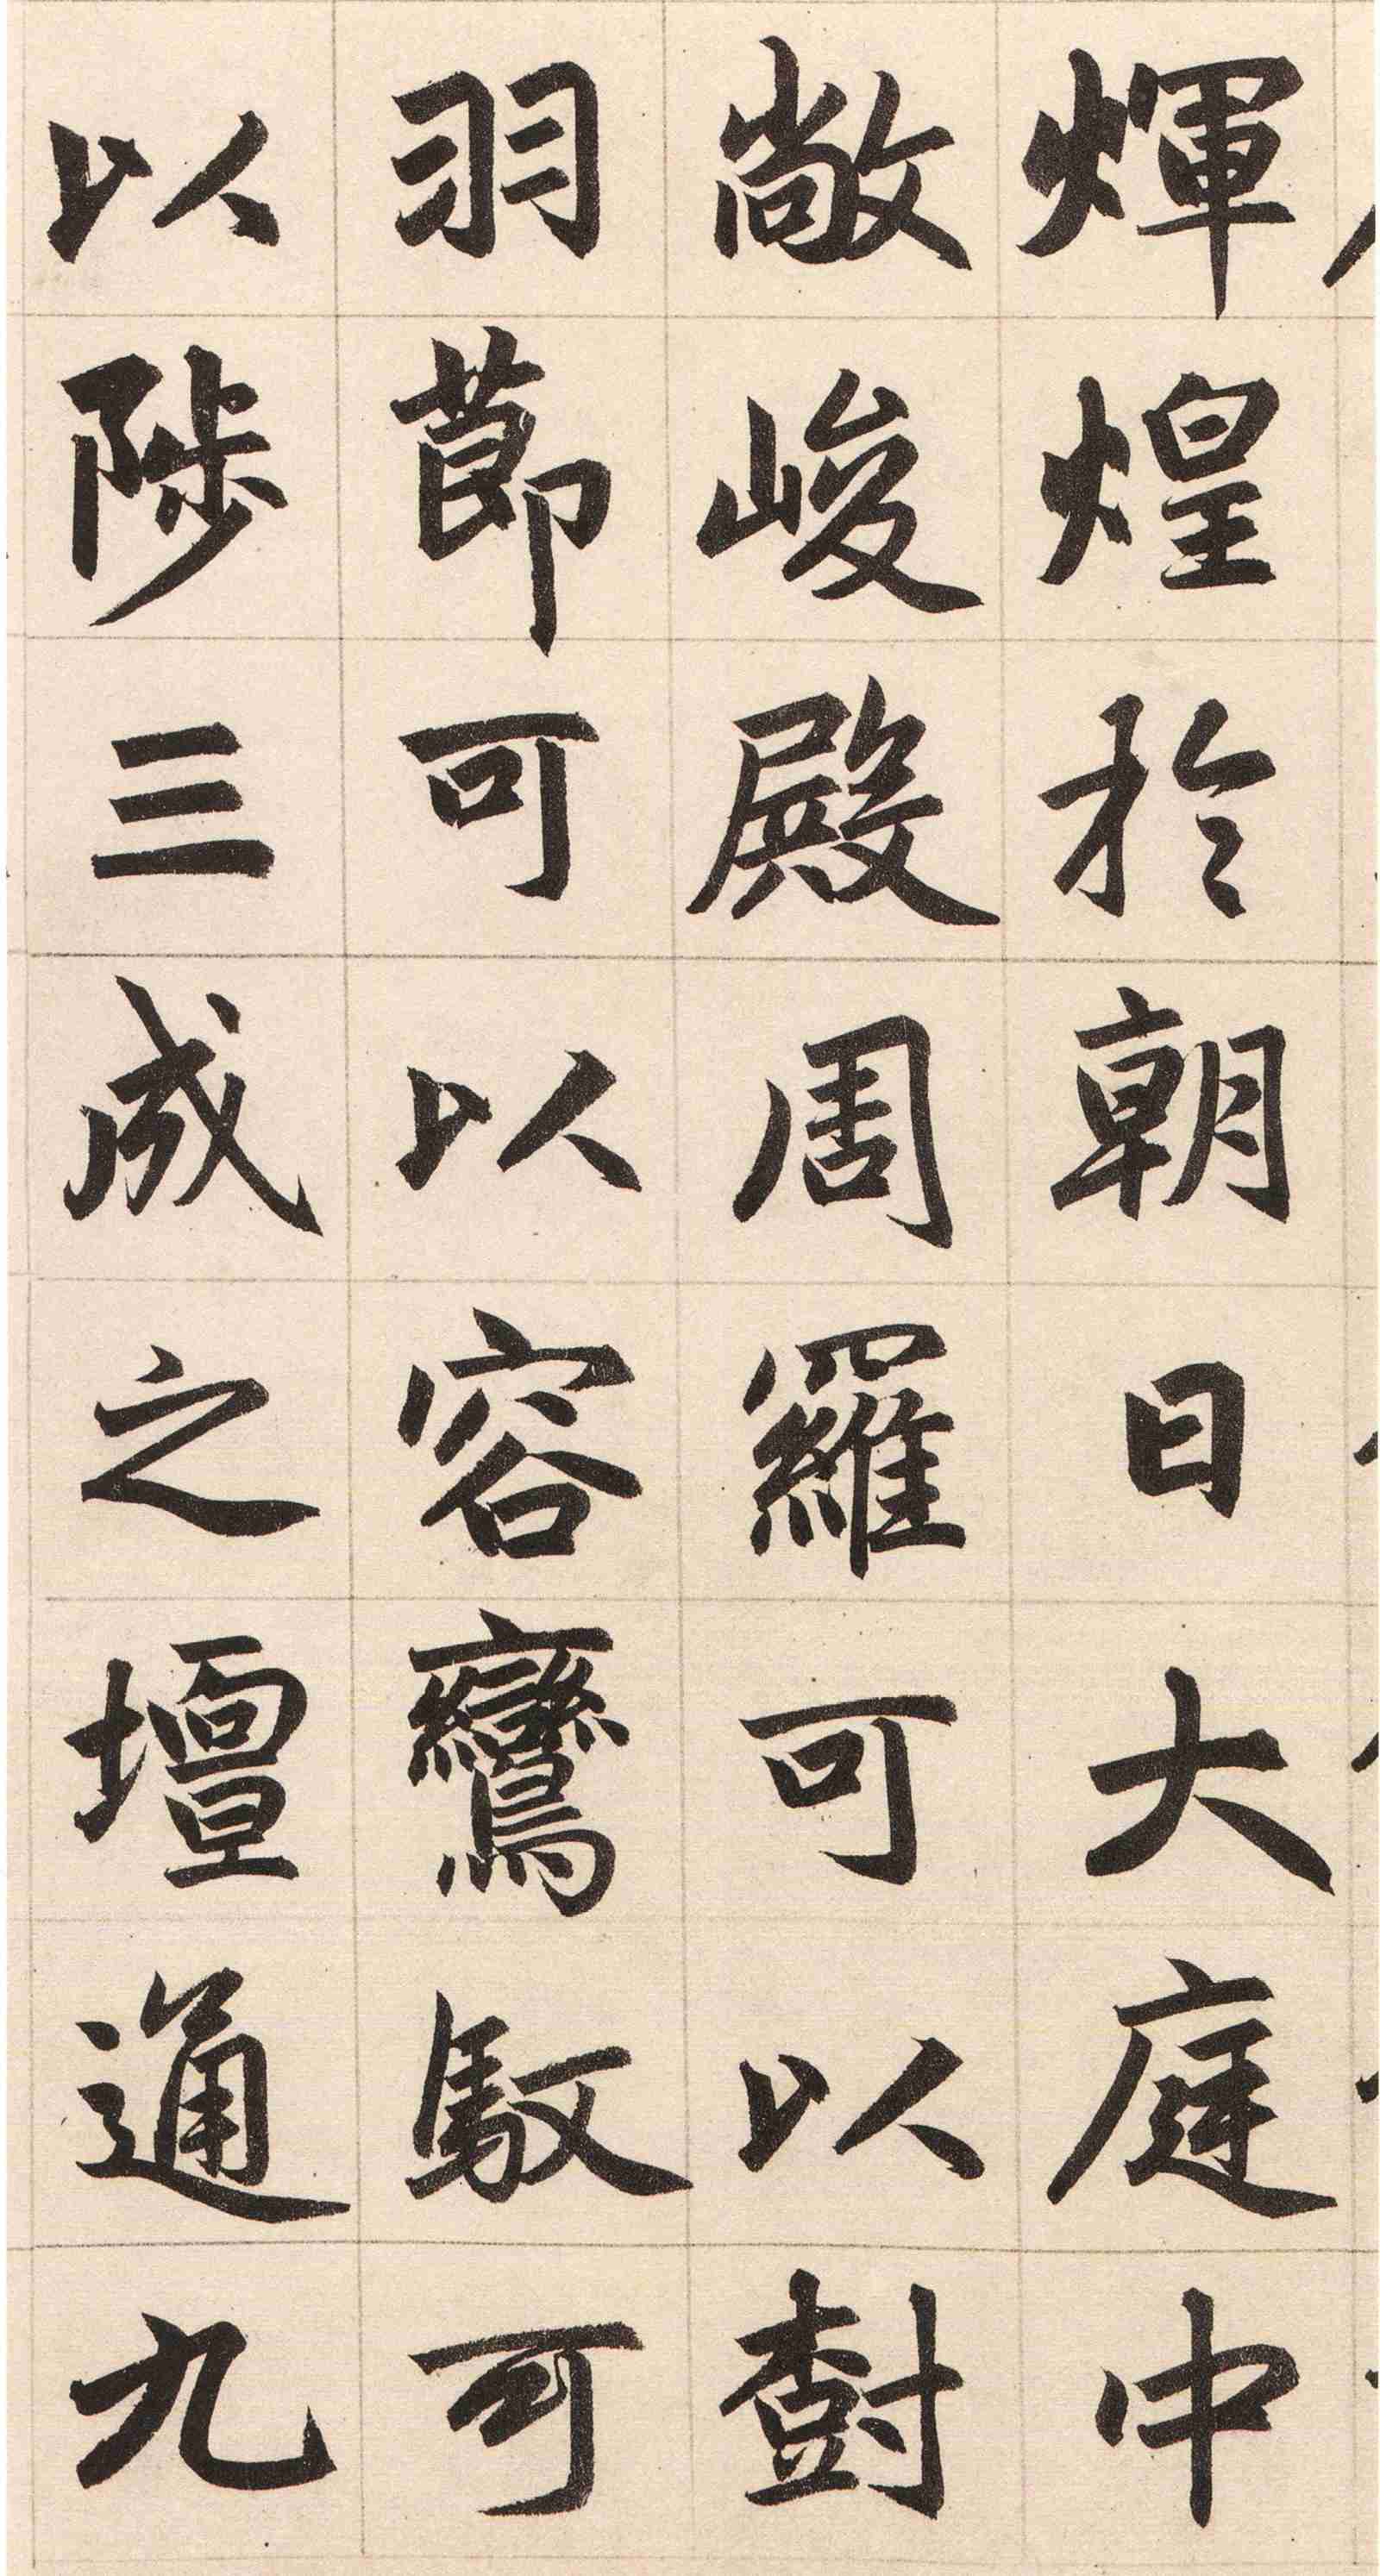 煇煌於朝日大庭中
敞峻殿周羅可以樹
羽莭可以容鸞馭可
以陟三成之壇通九